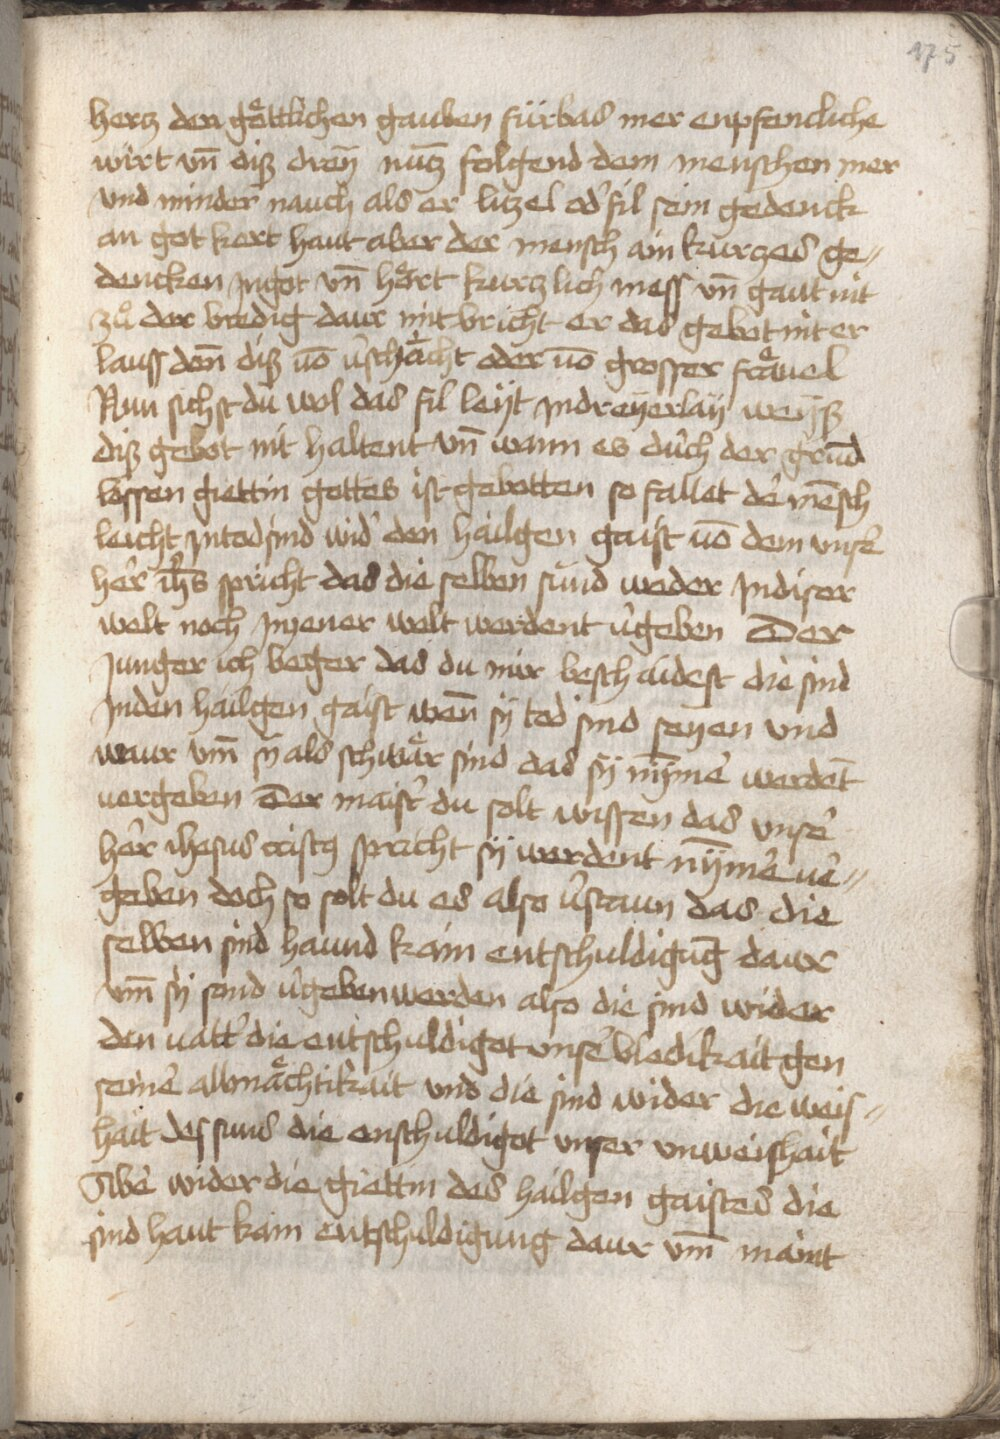 175
hertz den goͤttlichen gauben fürbas mer enpfencliche
wirt vn̄ diß dreÿ nutz folgend dem menschen mer
vnd minder nauch als er lützel od' fil sein gedenck
an got kert haut aber der mensch ain kurczes ge〃
dencken jn got vn̄ hoͤrt kurtzlich mess vn̄ gaut nit
zuͦ der bredig daur mit bricht er das gebot nit er
lauss don̄ diß vō v̓schaͤcht oder vō grosser fraͤuel
Nun sichst du wol das fil leÿt jn dreÿerlaÿ weÿß
diß gebot nit haltent vn̄ wann es durch der grūd
lossen giettin gottes ist gebotten so fallet de' mēsch
leicht jn tod sind wid' den hailgen gaist vō dem vnse'
her ih̄s spricht das die selben sünd weder jn diser
welt noch jn jener welt werdent v̓geben Der
junger ich beger das du mir beschaidest die sind
jn den hailgen gaist wen̄ sÿ tod sind seyen vnd
waur vm̄ sÿ als schwaͤr sind das sÿ nȳme' werdēt
vergeben Der maist' du solt wissen das vnse'
her ihesus cristꝯ spricht sÿ werdent nȳme' ve'〃
geben doch so solt du es also v̓staun das die
selben sind haund kain entschuldigūg daur
vm̄ sÿ sond v̓geben werden also die sind wider
den vatt' die entschuldiget vnse' bledikait gen
seine' allmaͤchtikait vnd die sind wider die weis〃
hait des suns die enschuldiget vnser vnweishait
Abe' wider die giettin des hailgen gaistes die
sind haut kain entschuldigung daur vm̄ maint